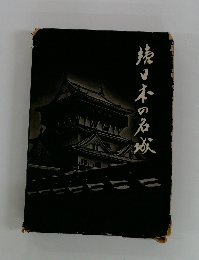 続日本の名城